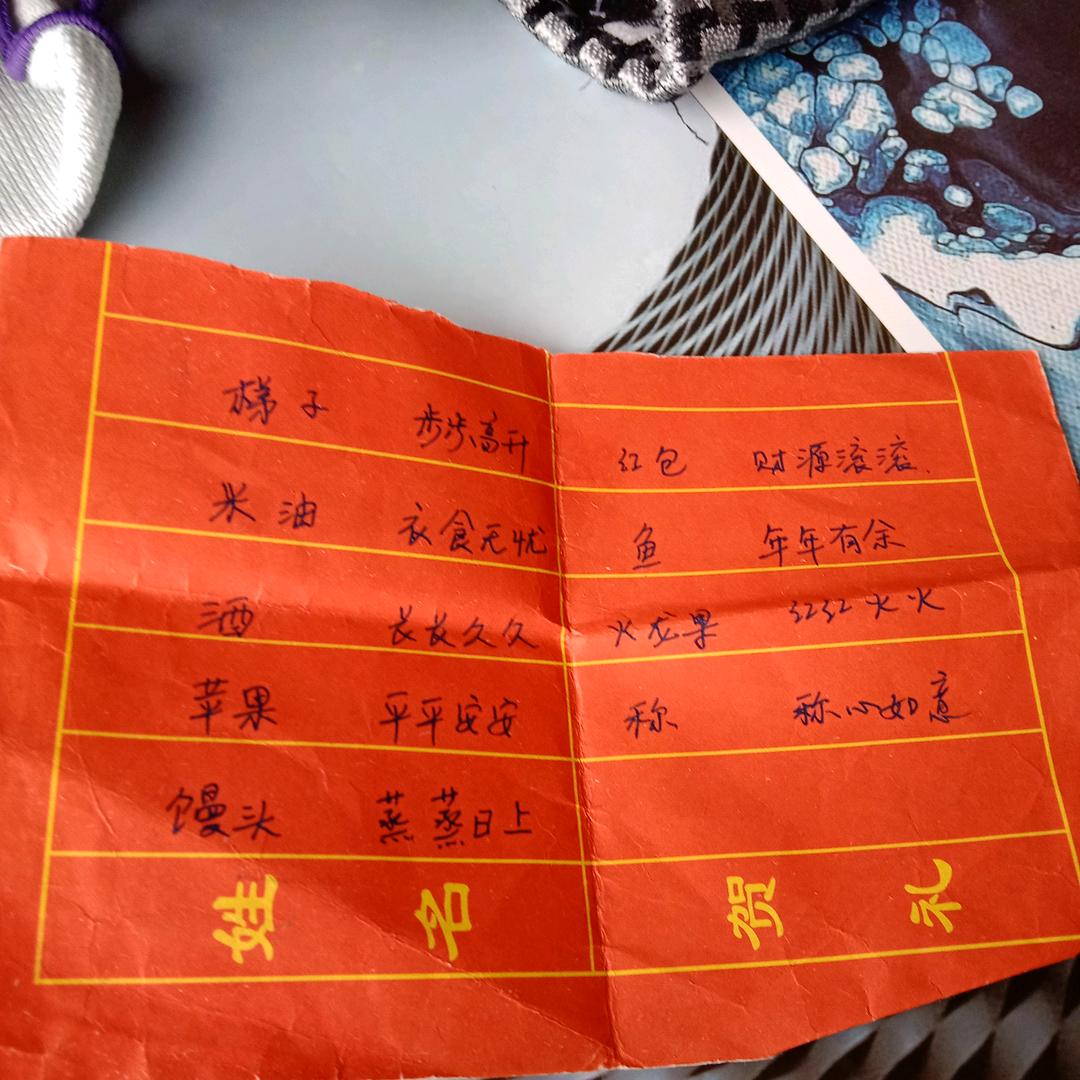 梯子 步步高升
米油 衣食无忧
酒 长长久久
苹果 平平安安
馒头 蒸蒸日上
红包 财源滚滚.
鱼 年年有余
火龙果 红红火火
称 称心如意
姓名
贺礼